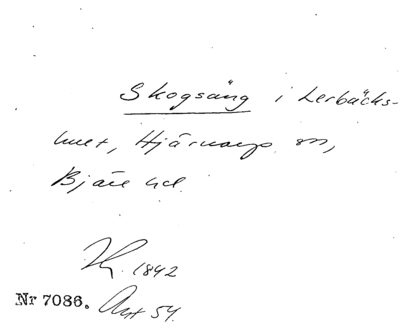 Skogsäng i Lerbäcks-
huset, Hjärnarps sn,
Bjäre hd.
1842
Nr 7086. Avt 54.